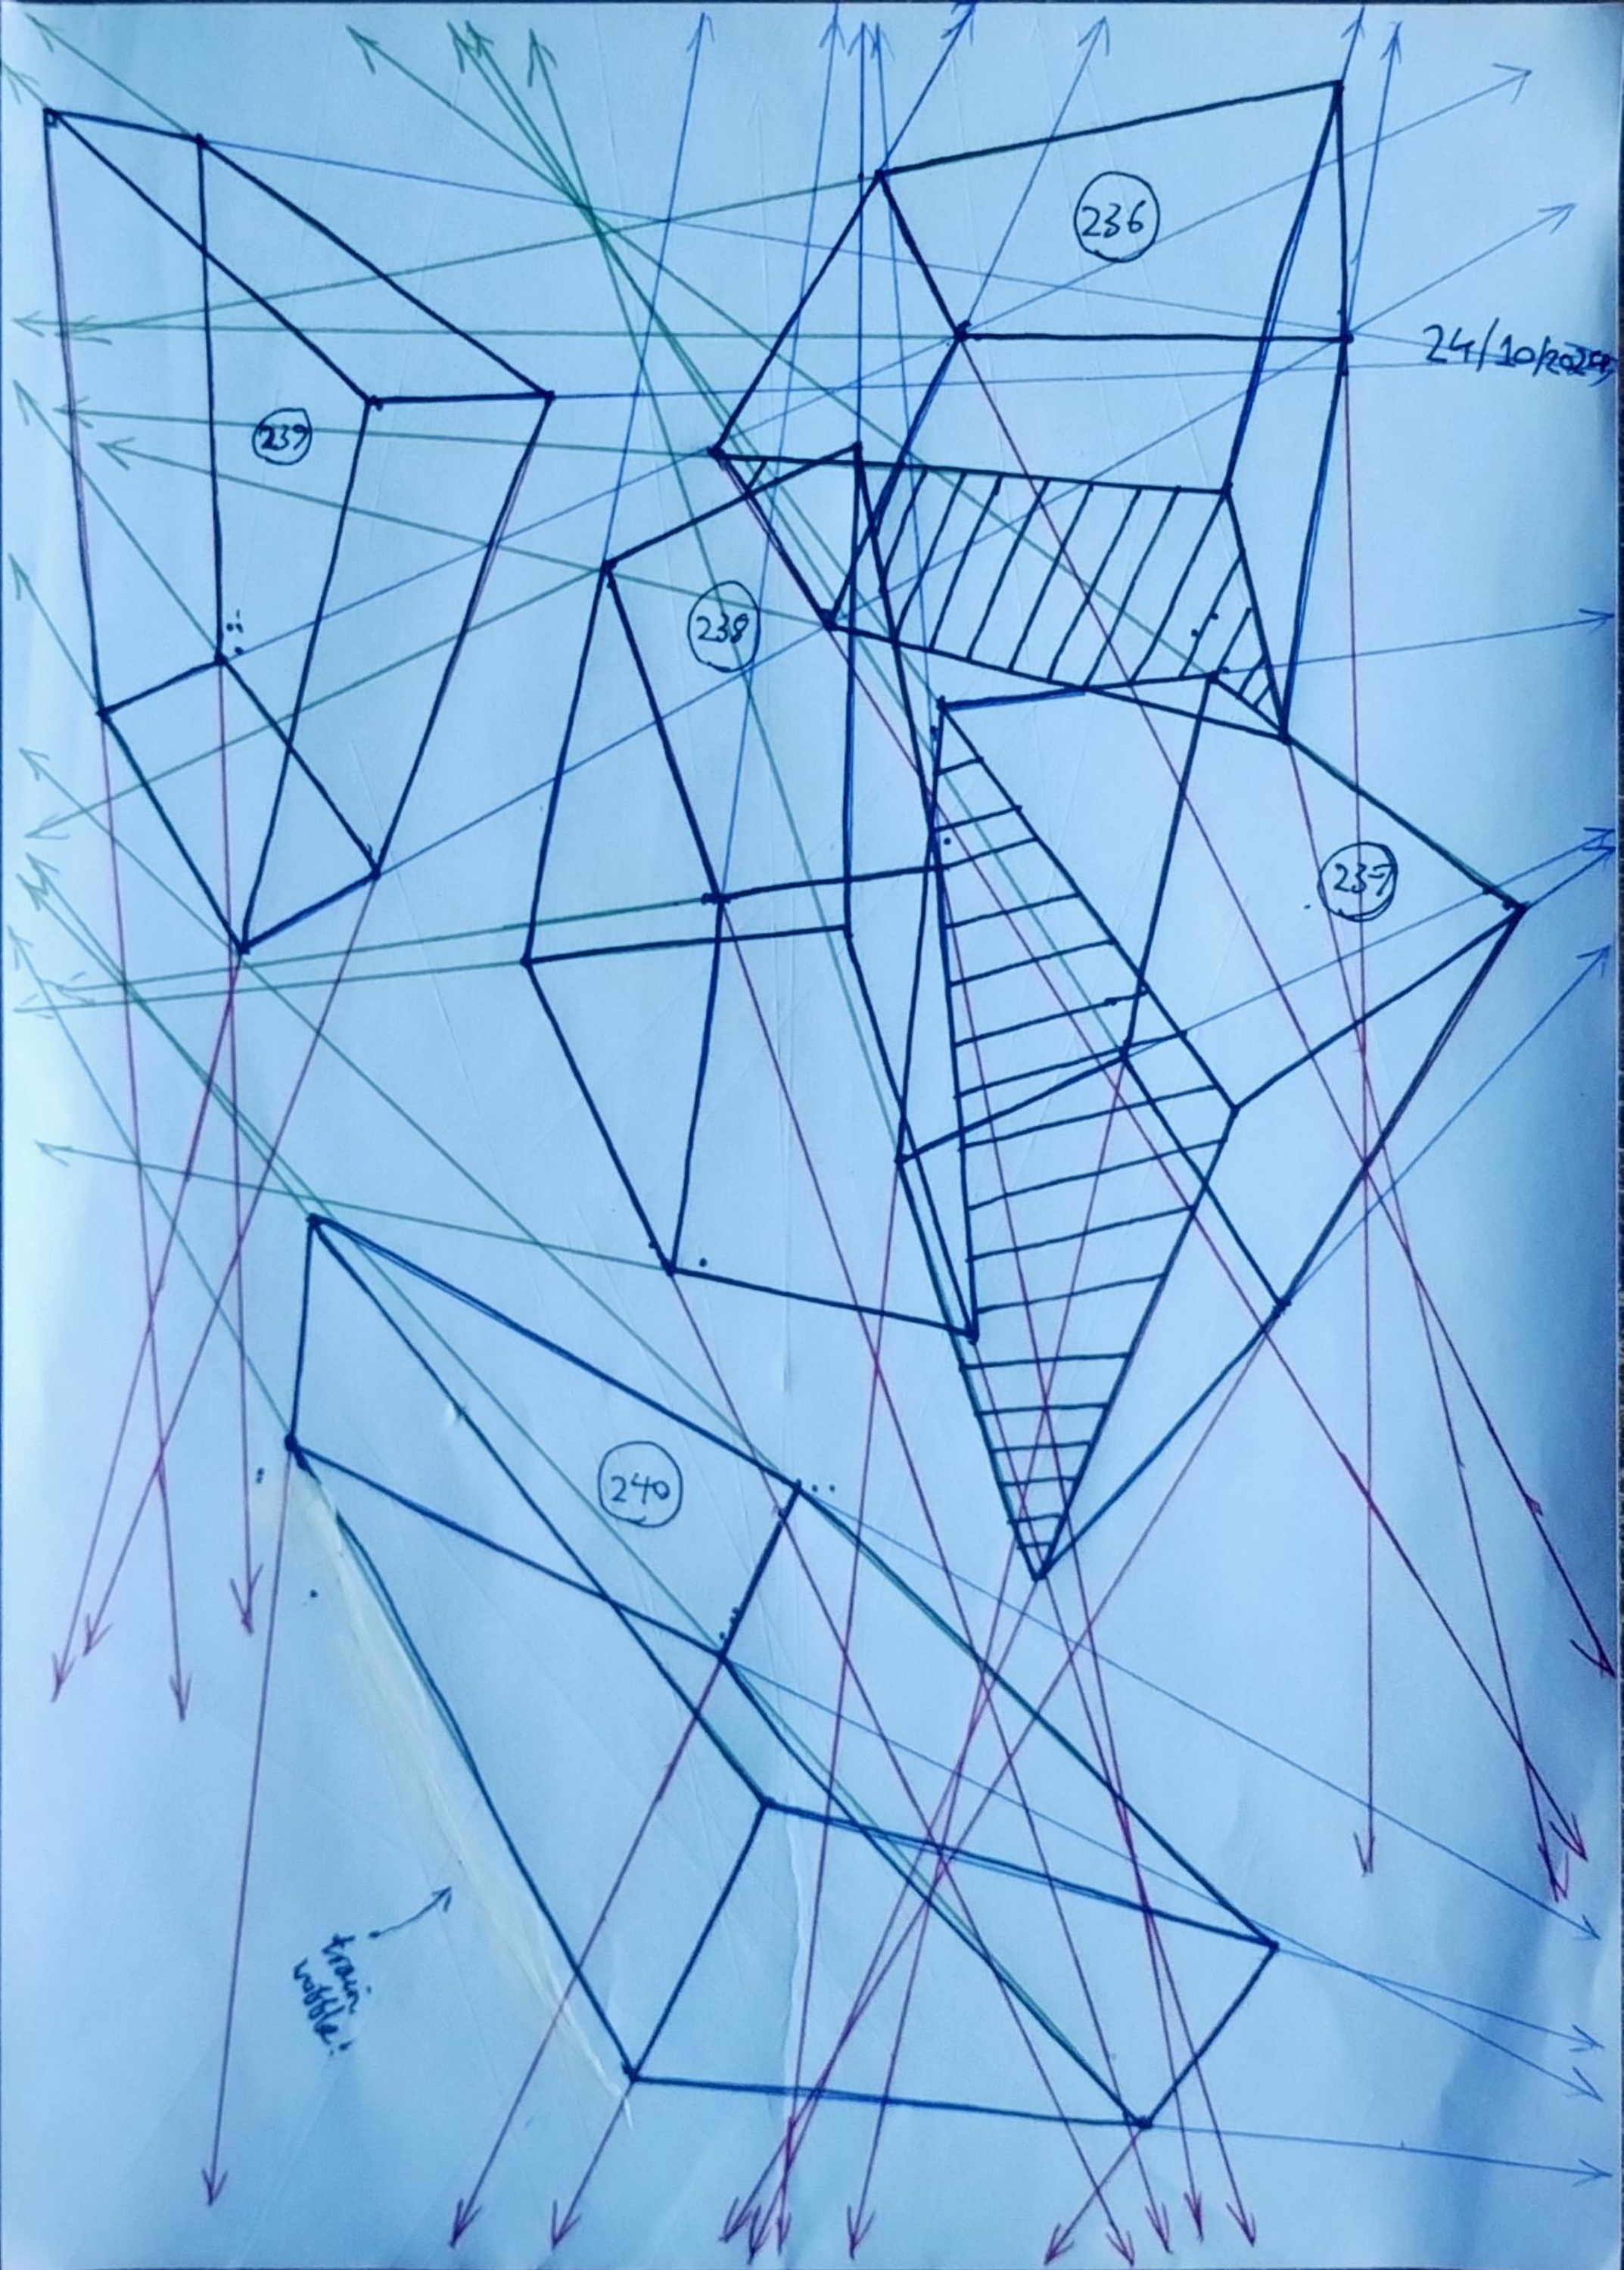 236
24/10/202
239
238
237
240
train
wobble!